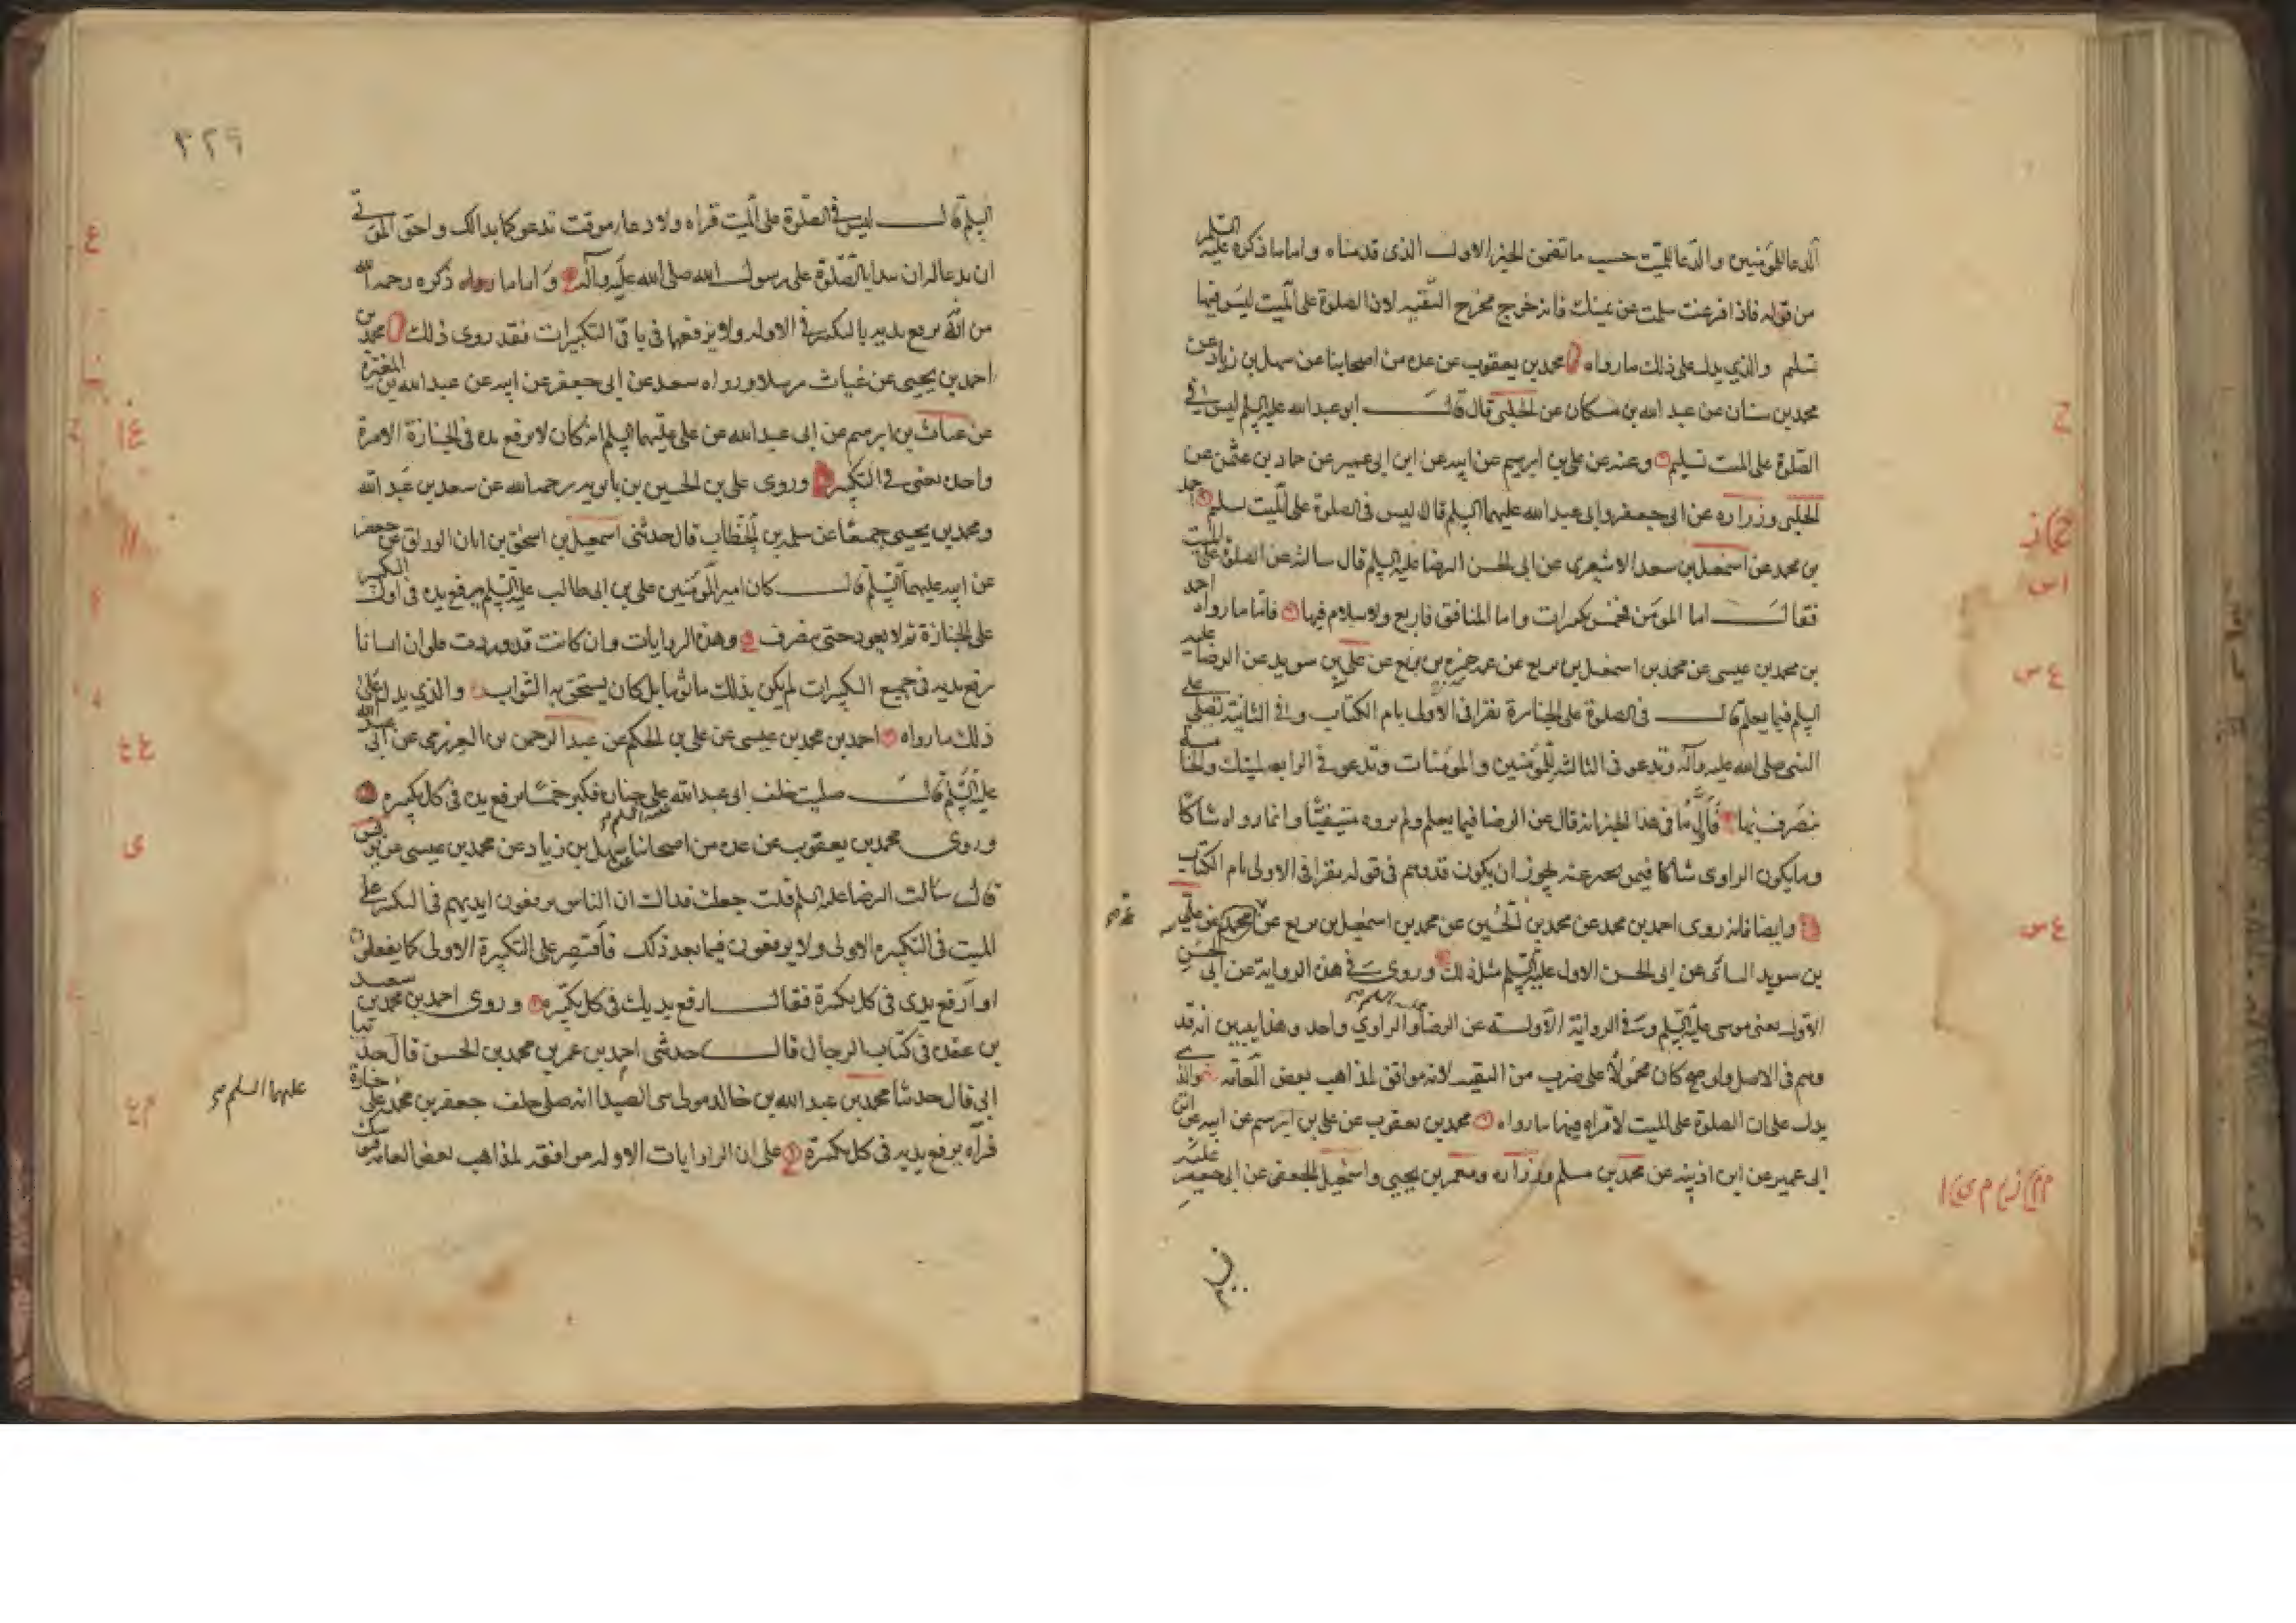 الدعا للمؤمنين والدعا للميت حسب ما تضمن الخبر الاول الذى قدمناه واما ما ذكره عليه السلم
من قوله فاذا فرغت سلمت عن يمينك فانه خرج مخرج التقيه لان الصلوة على الميت ليس فيها
تسليم والذي يدل على ذلك ما رواه محمد بن يعقوب عن عده من اصحابنا عن سهل بن زياد عن
محمد بن سنان عن عبد الله بن مسكان عن الحلبي قال قال ابو عبد الله عليه السلم ليس في
الصلوة على الميت تسليم وعنه عن علي بن ابرهيم عن ابيه عن ابن ابى عمير عن حماد بن عثمن عن
الحلبي وزراره عن ابى جعفر وابى عبد الله عليهما السلم قال ليس فى الصلوة على الميت تسليم احمد
بن محمد عن اسمعيل بن سعد الاشعرى عن ابى الحسن الرضا عليه السلم قال سالته عن الصلوة على الميت
فقال اما المؤمن فخمس تكبيرات واما المنافق فاربع ولا سلام فيها فاما ما رواه احمد
بن محمد بن عيسى عن محمد بن اسمعيل بن بزيع عن عمه حمزه بن بزيع عن علي بن سويد عن الرضا عليه
السلم فيما يعلم قال فى الصلوة على الجنايزة تقرا فى الاولى بام الكتاب وفى الثانية تصلى على
النبى صلى الله عليه وآله وتدعو فى الثالثه للمؤمنين والمؤمنات وتدعو فى الرابعه لميتك والخامسة
تنصرف بها فاول ما فى هذا الخبر انه قال عن الرضا فيما يعلم ولم يروه متيقنا وانما رواه شاكا
وما يكون الراوى شاكا فيه يجوز ان يكون قد وهم فى قوله يقرا فى الاولى بام الكتاب
وايضا فانه روى احمد بن محمد عن محمد بن الحسين عن محمد بن اسمعيل بن بزيع عن محمد عن علي
بن سويد السائى عن ابى الحسن الاول عليه السلم مثل ذلك وروى فى هذه الرواية عن ابى الحسن
الاول يعنى موسى عليه السلم وفى الرواية الاوله عن الرضا عليه السلم والراوي واحد وهذا يبين انه قد
وهم فى الاصل ولو صح كان محمولا على ضرب من التقيه لانه موافق لمذاهب بعض العامه والذى
يدل على ان الصلوة على الميت لا قراه فيها ما رواه محمد بن يعقوب عن علي بن ابرهيم عن ابيه عن ابن
ابى عمير عن ابن اذينه عن محمد بن مسلم وزراره ومعمر بن يحيى واسمعيل الجعفى عن ابى جعفر عليه
٣٢٩
السلم قال ليس فى الصلوة على الميت قراه ولا دعاء موقت تدعو كما بدا لك واحق الموتى
ان يدعا له ان يبدا بالصلوة على رسول الله صلى الله عليه وآله واما ما ذكره رحمه الله
من انه يرفع يديه بالتكبير فى الاوله ولا يرفعها فى باقى التكبيرات فقد روى ذلك محمد بن
احمد بن يحيى عن غياث مرسلا ورواه سعد عن ابى جعفر عن ابيه عن عبد الله بن المغيرة
عن غياث بن ابرهيم عن ابى عبد الله عن على عليهما السلم انه كان لا يرفع يده فى الجنازة الا مرة
واحده يعنى فى التكبير وروى على بن الحسين بن بابويه رحمه الله عن سعد بن عبد الله
ومحمد بن يحيى جميعا عن سلمه بن الخطاب قال حدثنى اسمعيل بن اسحق بن ابان الوراق عن جعفر
عن ابيه عليهما السلم قال كان امير المؤمنين على بن ابى طالب عليه السلم يرفع يده فى اول التكبير
على الجنازة ثم لا يعود حتى ينصرف وهذه الروايات وان كانت قد وردت على ان انسانا
يرفع يديه فى جميع التكبيرات لم يكن بذلك ماثوما بل كان يستحق به الثواب والذي يدل على
ذلك ما رواه احمد بن محمد بن عيسى عن على بن الحكم عن عبد الرحمن بن العرزمى عن ابى عبد الله
عليه السلم قال صليت خلف ابى عبد الله عليه السلم على جنازه فكبر خمسا يرفع يده فى كل تكبيره
وروى محمد بن يعقوب عن عده من اصحابنا عن سهل بن زياد عن محمد بن عيسى عن يونس
قال سالت الرضا عليه السلم قلت جعلت فداك ان الناس يرفعون ايديهم فى التكبير على
الميت فى التكبيره الاولى ولا يرفعون فيما بعد ذلك فأقتصر على التكبيرة الاولى كما يفعلون
او أرفع يدى فى كل تكبيرة فقال ارفع يديك فى كل تكبيره وروى احمد بن محمد بن سعيد
بن عقده فى كتاب الرجال قال حدثنى احمد بن عمر بن محمد بن الحسن قال حدثنا
ابي قال حدثنا محمد بن عبد الله بن خالد مولى بنى الصيدا انه صلى خلف جعفر بن محمد عليهما السلم على جنازة
فرآه يرفع يديه فى كل تكبيرة على ان الروايات الاوله موافقه لمذاهب بعض العامه